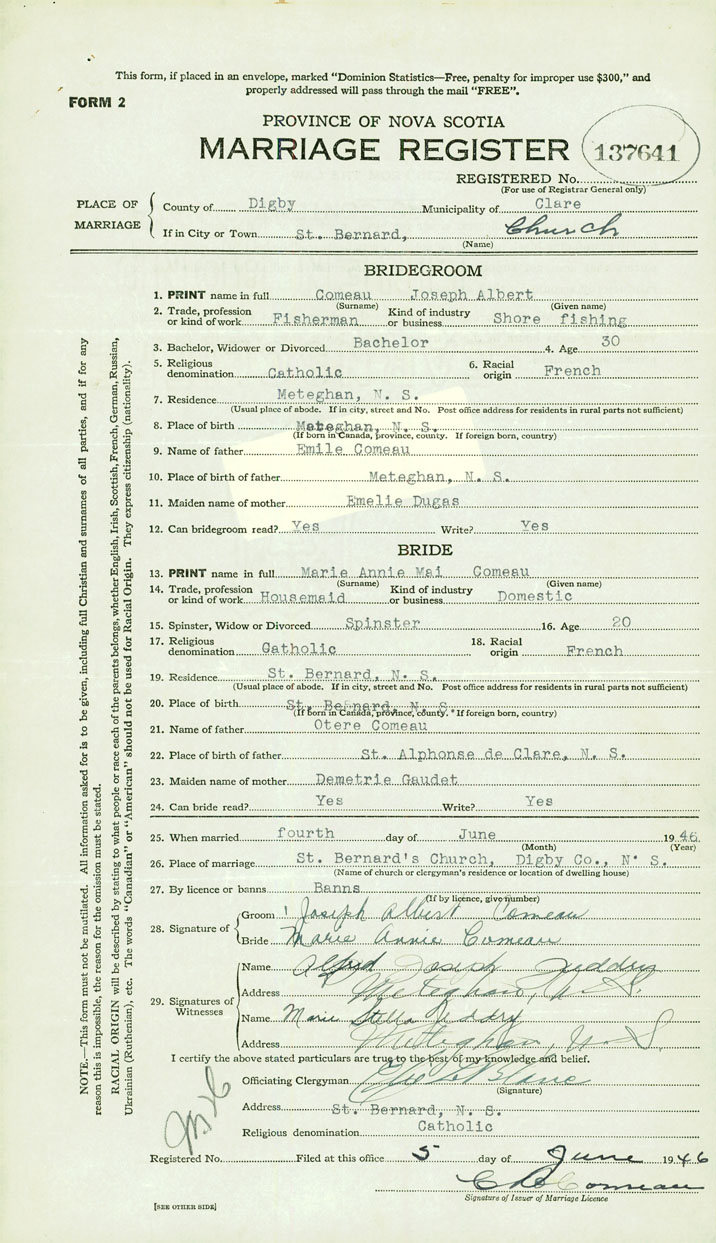 This form, if placed in an envelope, marked "Dominion Statistics—Free, penalty for improper use $300," and
properly addressed will pass through the mail "FREE".
FORM 2
PROVINCE OF NOVA SCOTIA
MARRIAGE REGISTER
137641
REGISTERED No.
(For use of Registrar General only)
PLACE OF MARRIAGE
County of Digby Municipality of Clare
If in City or Town St. Bernard, Church
(Name)
BRIDEGROOM
1. PRINT name in full Comeau Joseph Albert
(Surname) (Given name)
2. Trade, profession or kind of work Fisherman Kind of industry or business Shore fishing
3. Bachelor, Widower or Divorced Bachelor 4. Age 30
5. Religious denomination Catholic 6. Racial origin French
7. Residence Meteghan, N. S.
(Usual place of abode. If in city, street and No. Post office address for residents in rural parts not sufficient)
8. Place of birth Meteghan, N. S.
(If born in Canada, province, county. If foreign born, country)
9. Name of father Emile Comeau
10. Place of birth of father Meteghan, N. S.
11. Maiden name of mother Emelie Dugas
12. Can bridegroom read? Yes Write? Yes
BRIDE
13. PRINT name in full Marie Annie Mai Comeau
(Surname) (Given name)
14. Trade, profession or kind of work Housemaid Kind of industry or business Domestic
15. Spinster, Widow or Divorced Spinster 16. Age 20
17. Religious denomination Catholic 18. Racial origin French
19. Residence St. Bernard, N. S.
(Usual place of abode. If in city, street and No. Post office address for residents in rural parts not sufficient)
20. Place of birth St. Bernard, N. S.
(If born in Canada, province, county. If foreign born, country)
21. Name of father Otere Comeau
22. Place of birth of father St. Alphonse de Clare, N. S.
23. Maiden name of mother Demetrie Gaudet
24. Can bride read? Yes Write? Yes
25. When married fourth day of June 1946
(Month) (Year)
26. Place of marriage St. Bernard's Church, Digby Co., N. S.
(Name of church or clergyman's residence or location of dwelling house)
27. By licence or banns Banns
(If by licence, give number)
28. Signature of
Groom Joseph Albert Comeau
Bride Marie Annie Comeau
29. Signatures of Witnesses
Name Alfred Joseph Jeddry
Address Meteghan, N. S.
Name Marie Stella Jeddry
Address Meteghan, N. S.
I certify the above stated particulars are true to the best of my knowledge and belief.
Officiating Clergyman LeBlanc
(Signature)
Address St. Bernard, N. S.
Religious denomination Catholic
Registered No. Filed at this office 5 day of June 1946
Comeau
Signature of Issuer of Marriage Licence
[SEE OTHER SIDE]
NOTE.—This form must not be mutilated. All information asked for is to be given, including full Christian and surnames of all parties, and if for any
reason this is impossible, the reason for the omission must be stated.
RACIAL ORIGIN will be described by stating to what people or race each of the parents belongs, whether English, Irish, Scottish, French, German, Russian,
Ukrainian (Ruthenian), etc. The words "Canadian" or "American" should not be used for Racial Origin. They express citizenship (nationality).